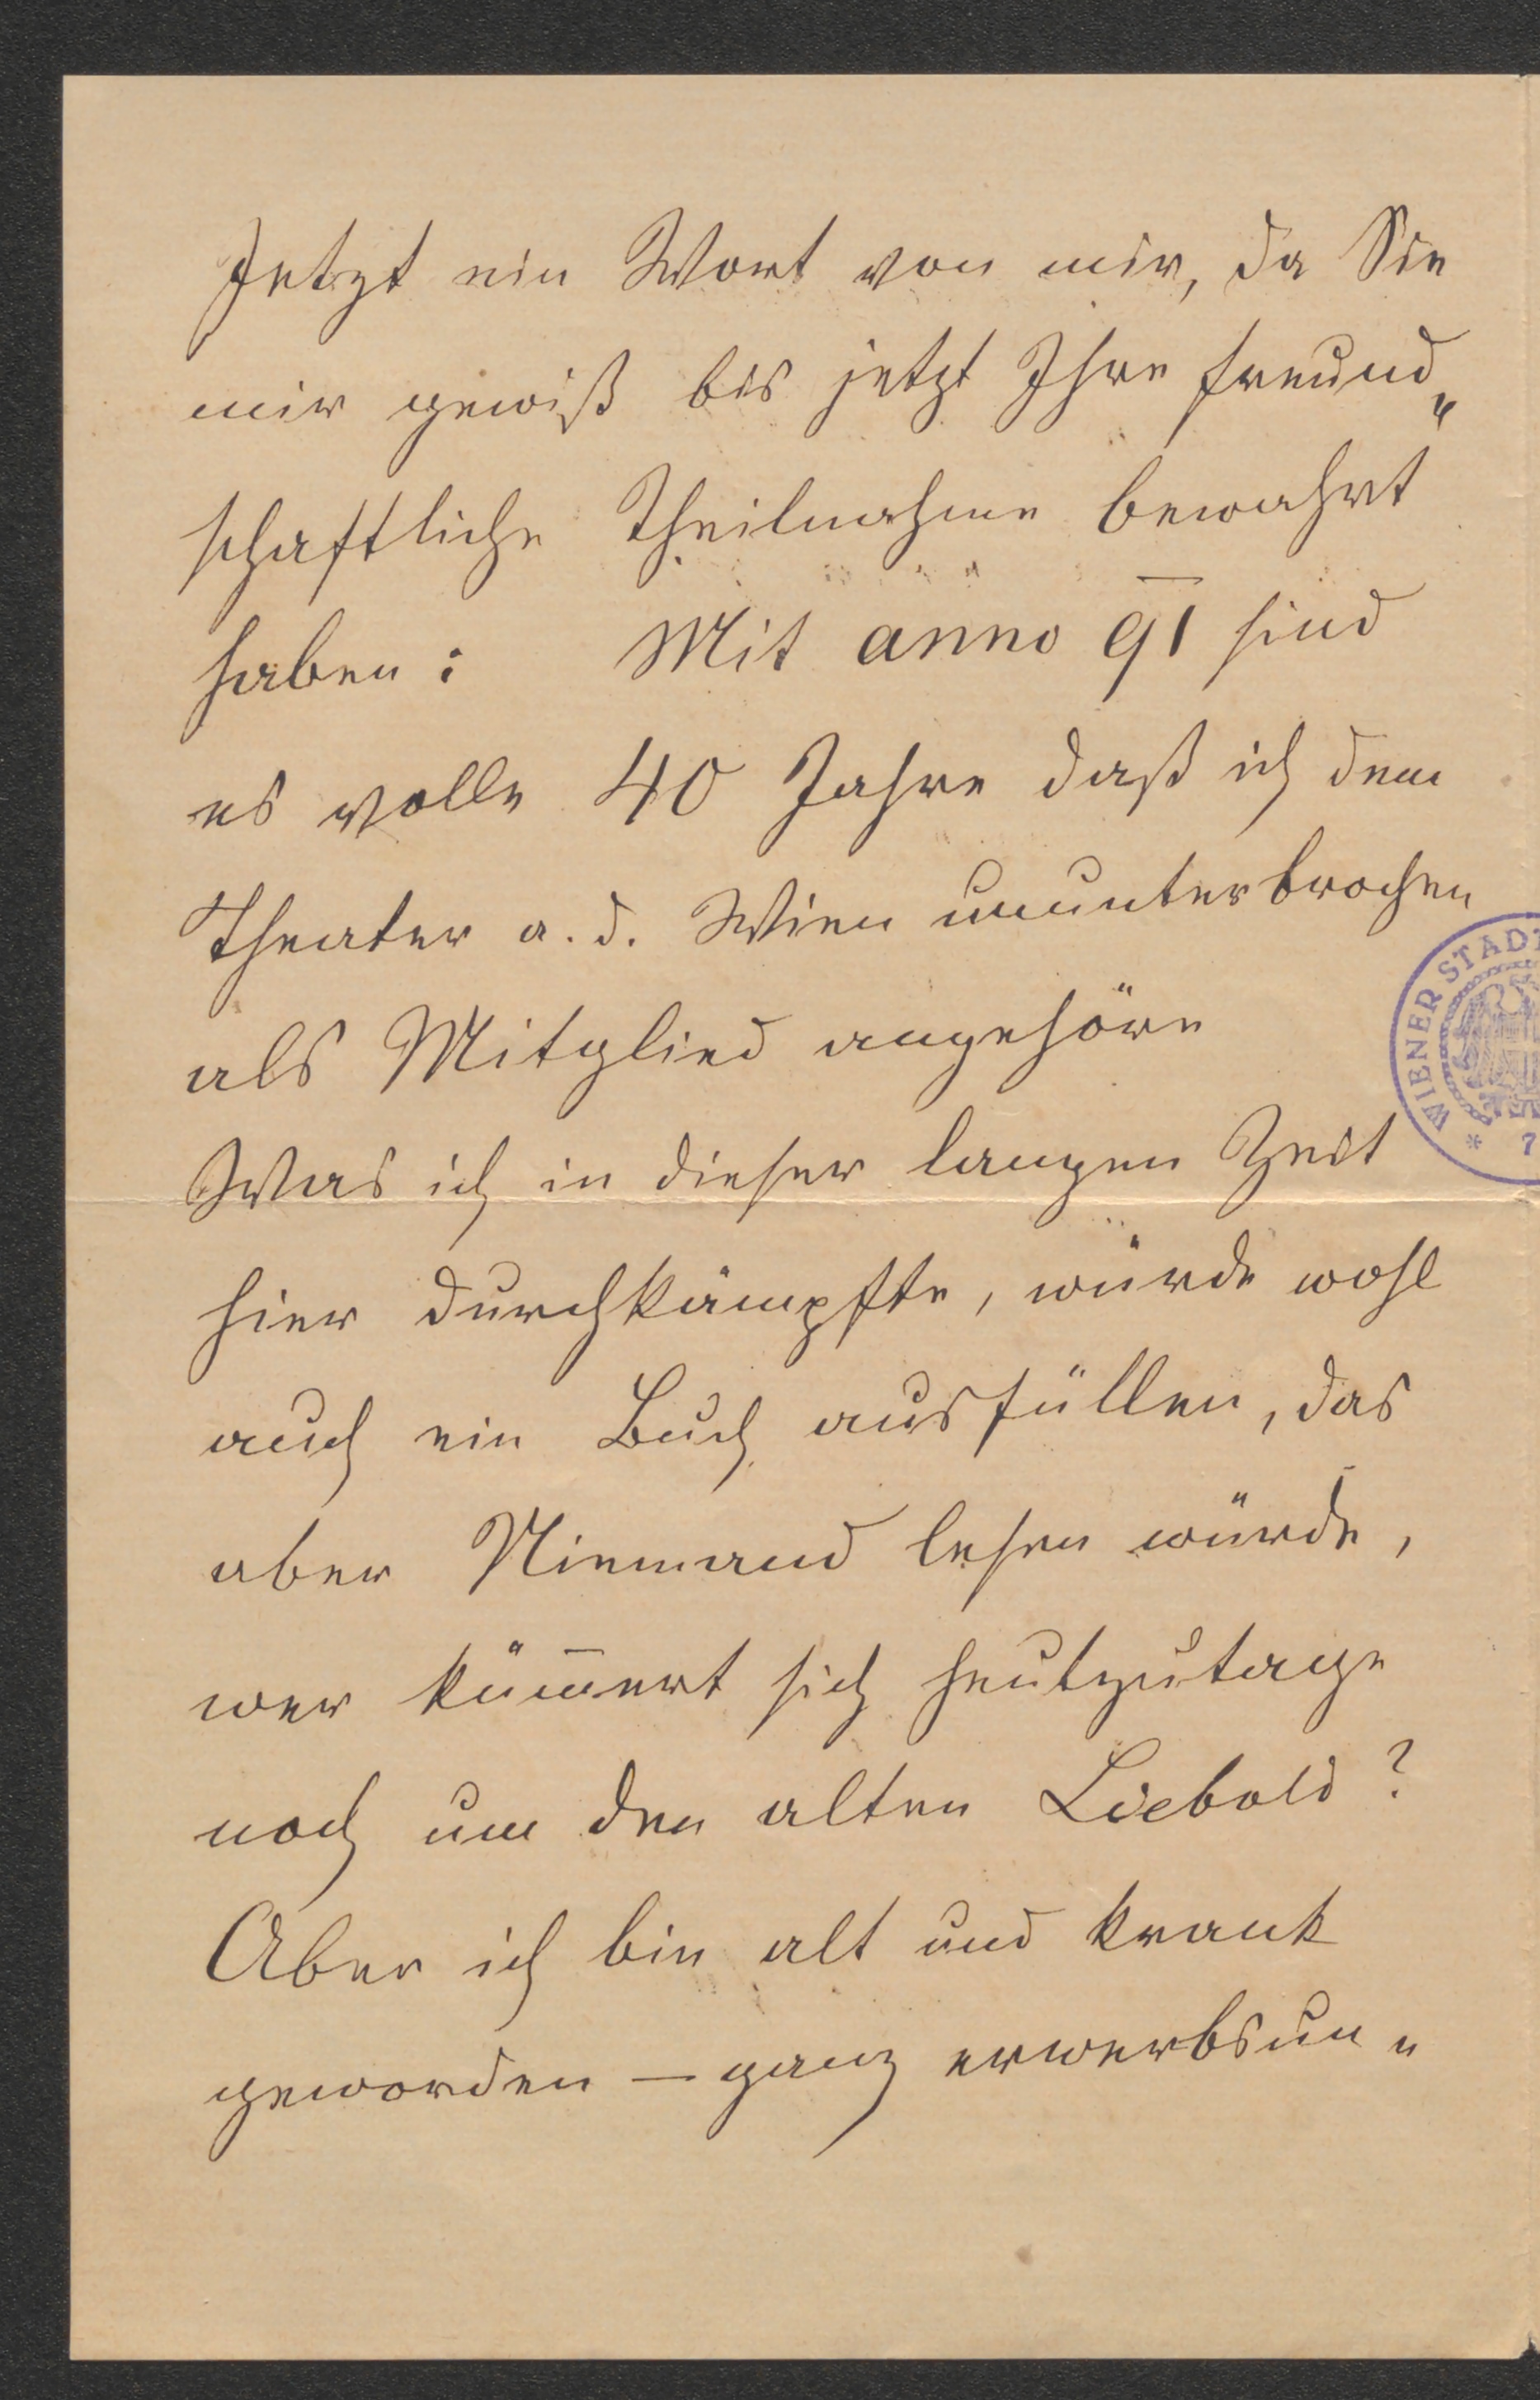 Jetzt ein Wort von mir, da Sie
mir gewiß bis jetzt Ihre freund„
schaftliche Theilnahme bewahrt
haben: Mit anno 91 sind
es volle 40 Jahre daß ich dem
Theater a. d. Wien ununterbrochen
als Mitglied angehöre
Was ich in dieser langen Zeit
hier durchkämpfte, würde wohl
auch ein Buch ausfüllen, das
aber Niemand lesen würde,
werküm̅ert sich heutzutage
noch um den alten Liebold?
Aber ich bin alt und krank
geworden — ganz erwerbsun„
WIENER STADT
* 7